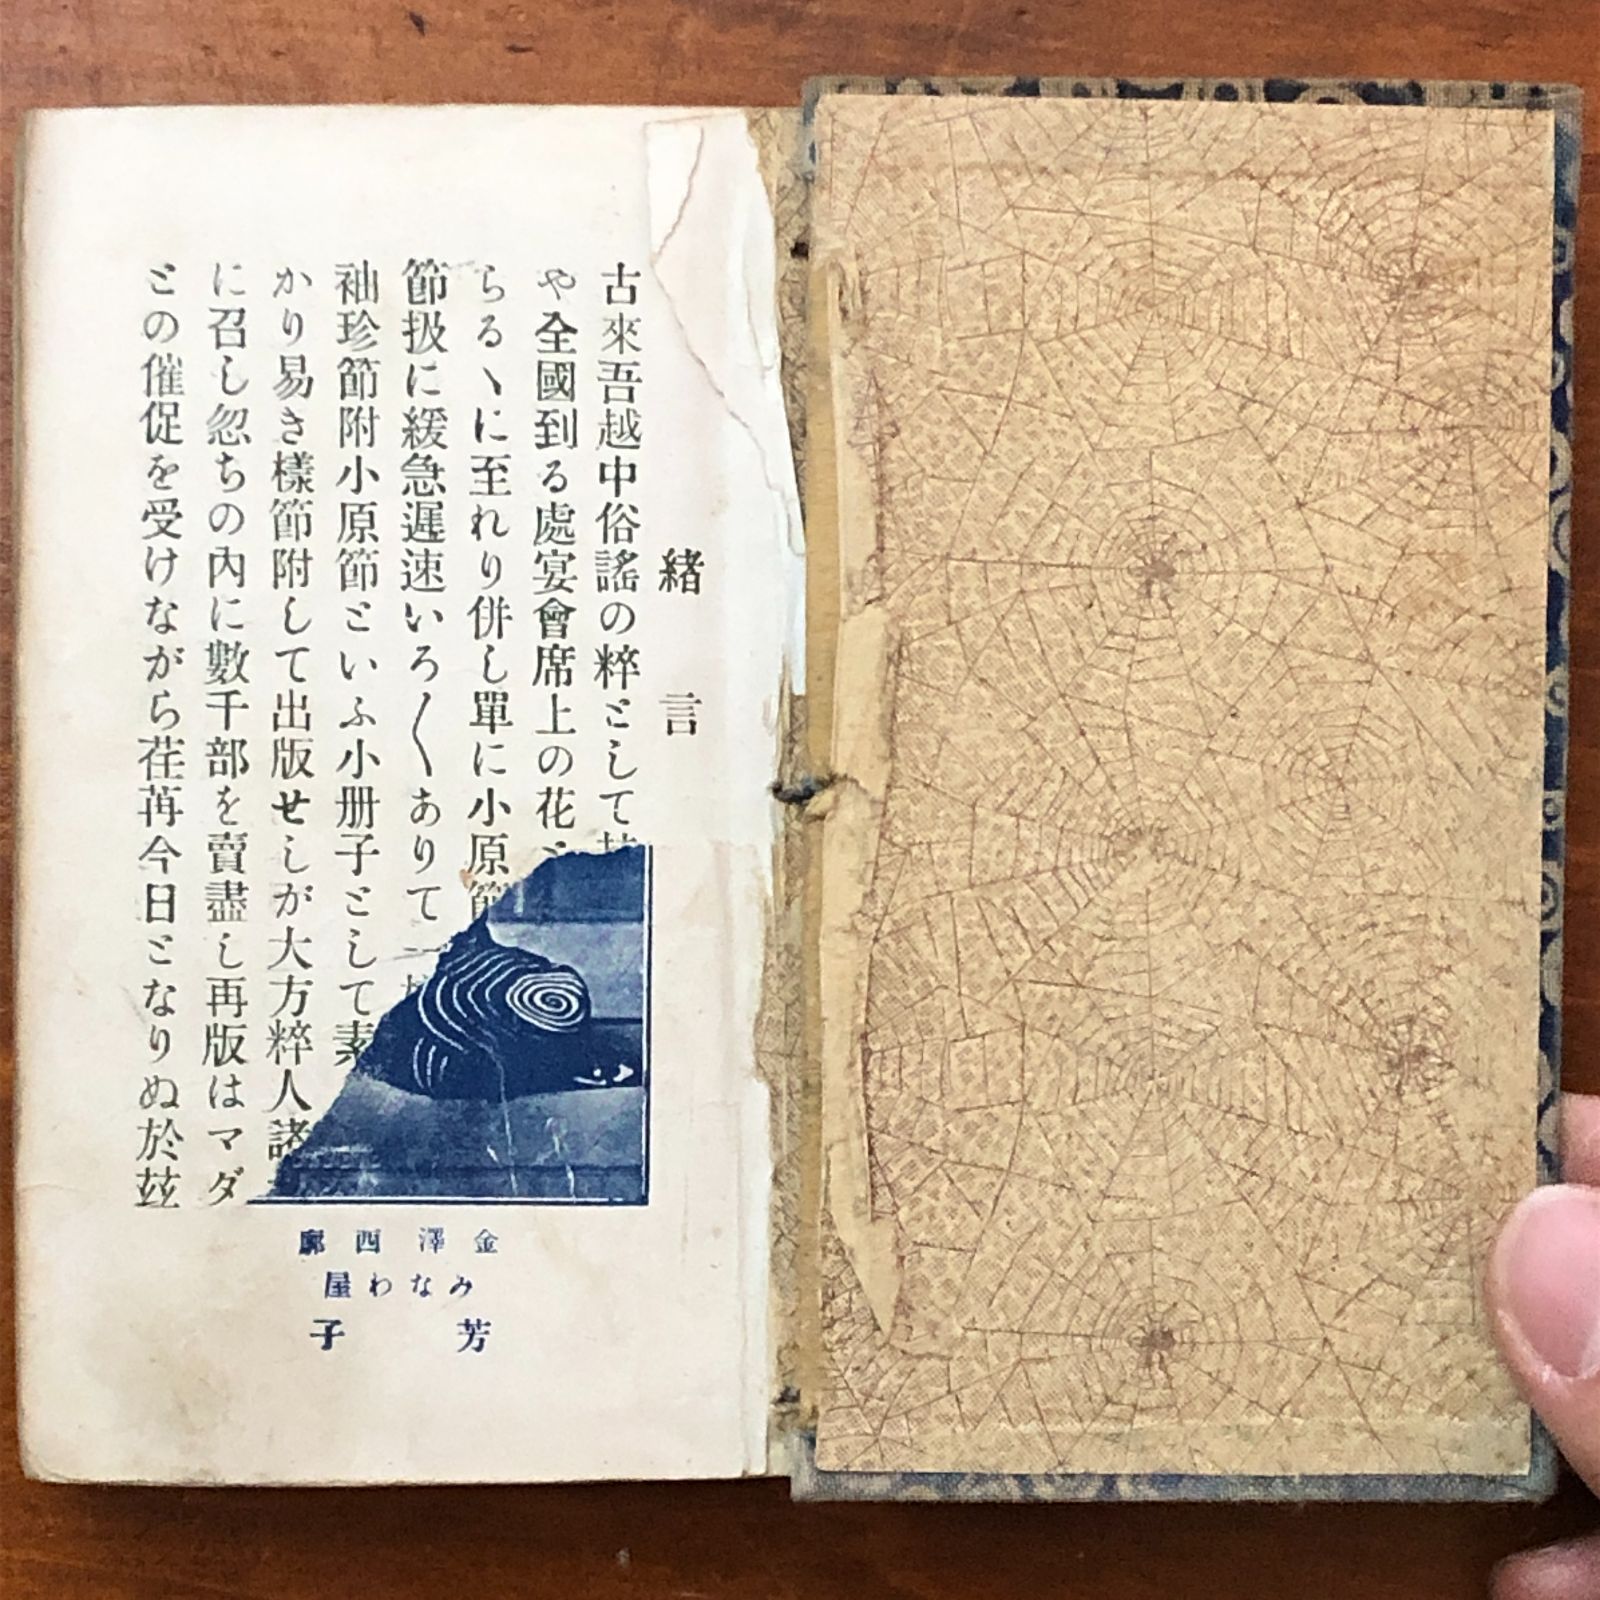 緒言
古來吾越中俗謠の粹として
や全國到る處宴會席上の花と
らるゝに至れり併し單に小原節
節扱に緩急遲速いろ〱ありて一
袖珍節附小原節といふ小册子として素
かり易き樣節附して出版せしが大方粹人諸
に召し忽ちの內に數千部を賣盡し再版はマダ
との催促を受けながら荏苒今日となりぬ於玆
金澤西廓
みなわ屋
芳子